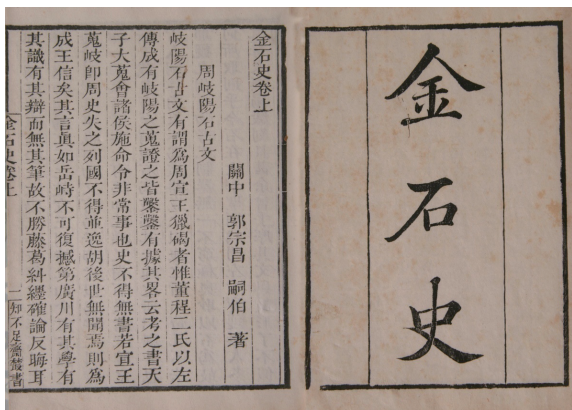 金石史
金石史卷上
關中 郭宗昌 嗣伯 著
周岐陽石古文
岐陽石古文有謂爲周宣王獵碣者惟董程二氏以左
傳成有岐陽之蒐證之皆鑿鑿有據其畧云考之書天
子大蒐會諸侯施命令非常事也史不得無書若宣王
蒐岐卽周史失之列國不得並逸胡後世無聞焉則爲
成王信矣其言眞如岳峙不可復撼第廣川有其學有
其識有其辯而無其筆故不勝藤葛糾纒確論反晦耳
金石史卷上
一 知不足齋叢書